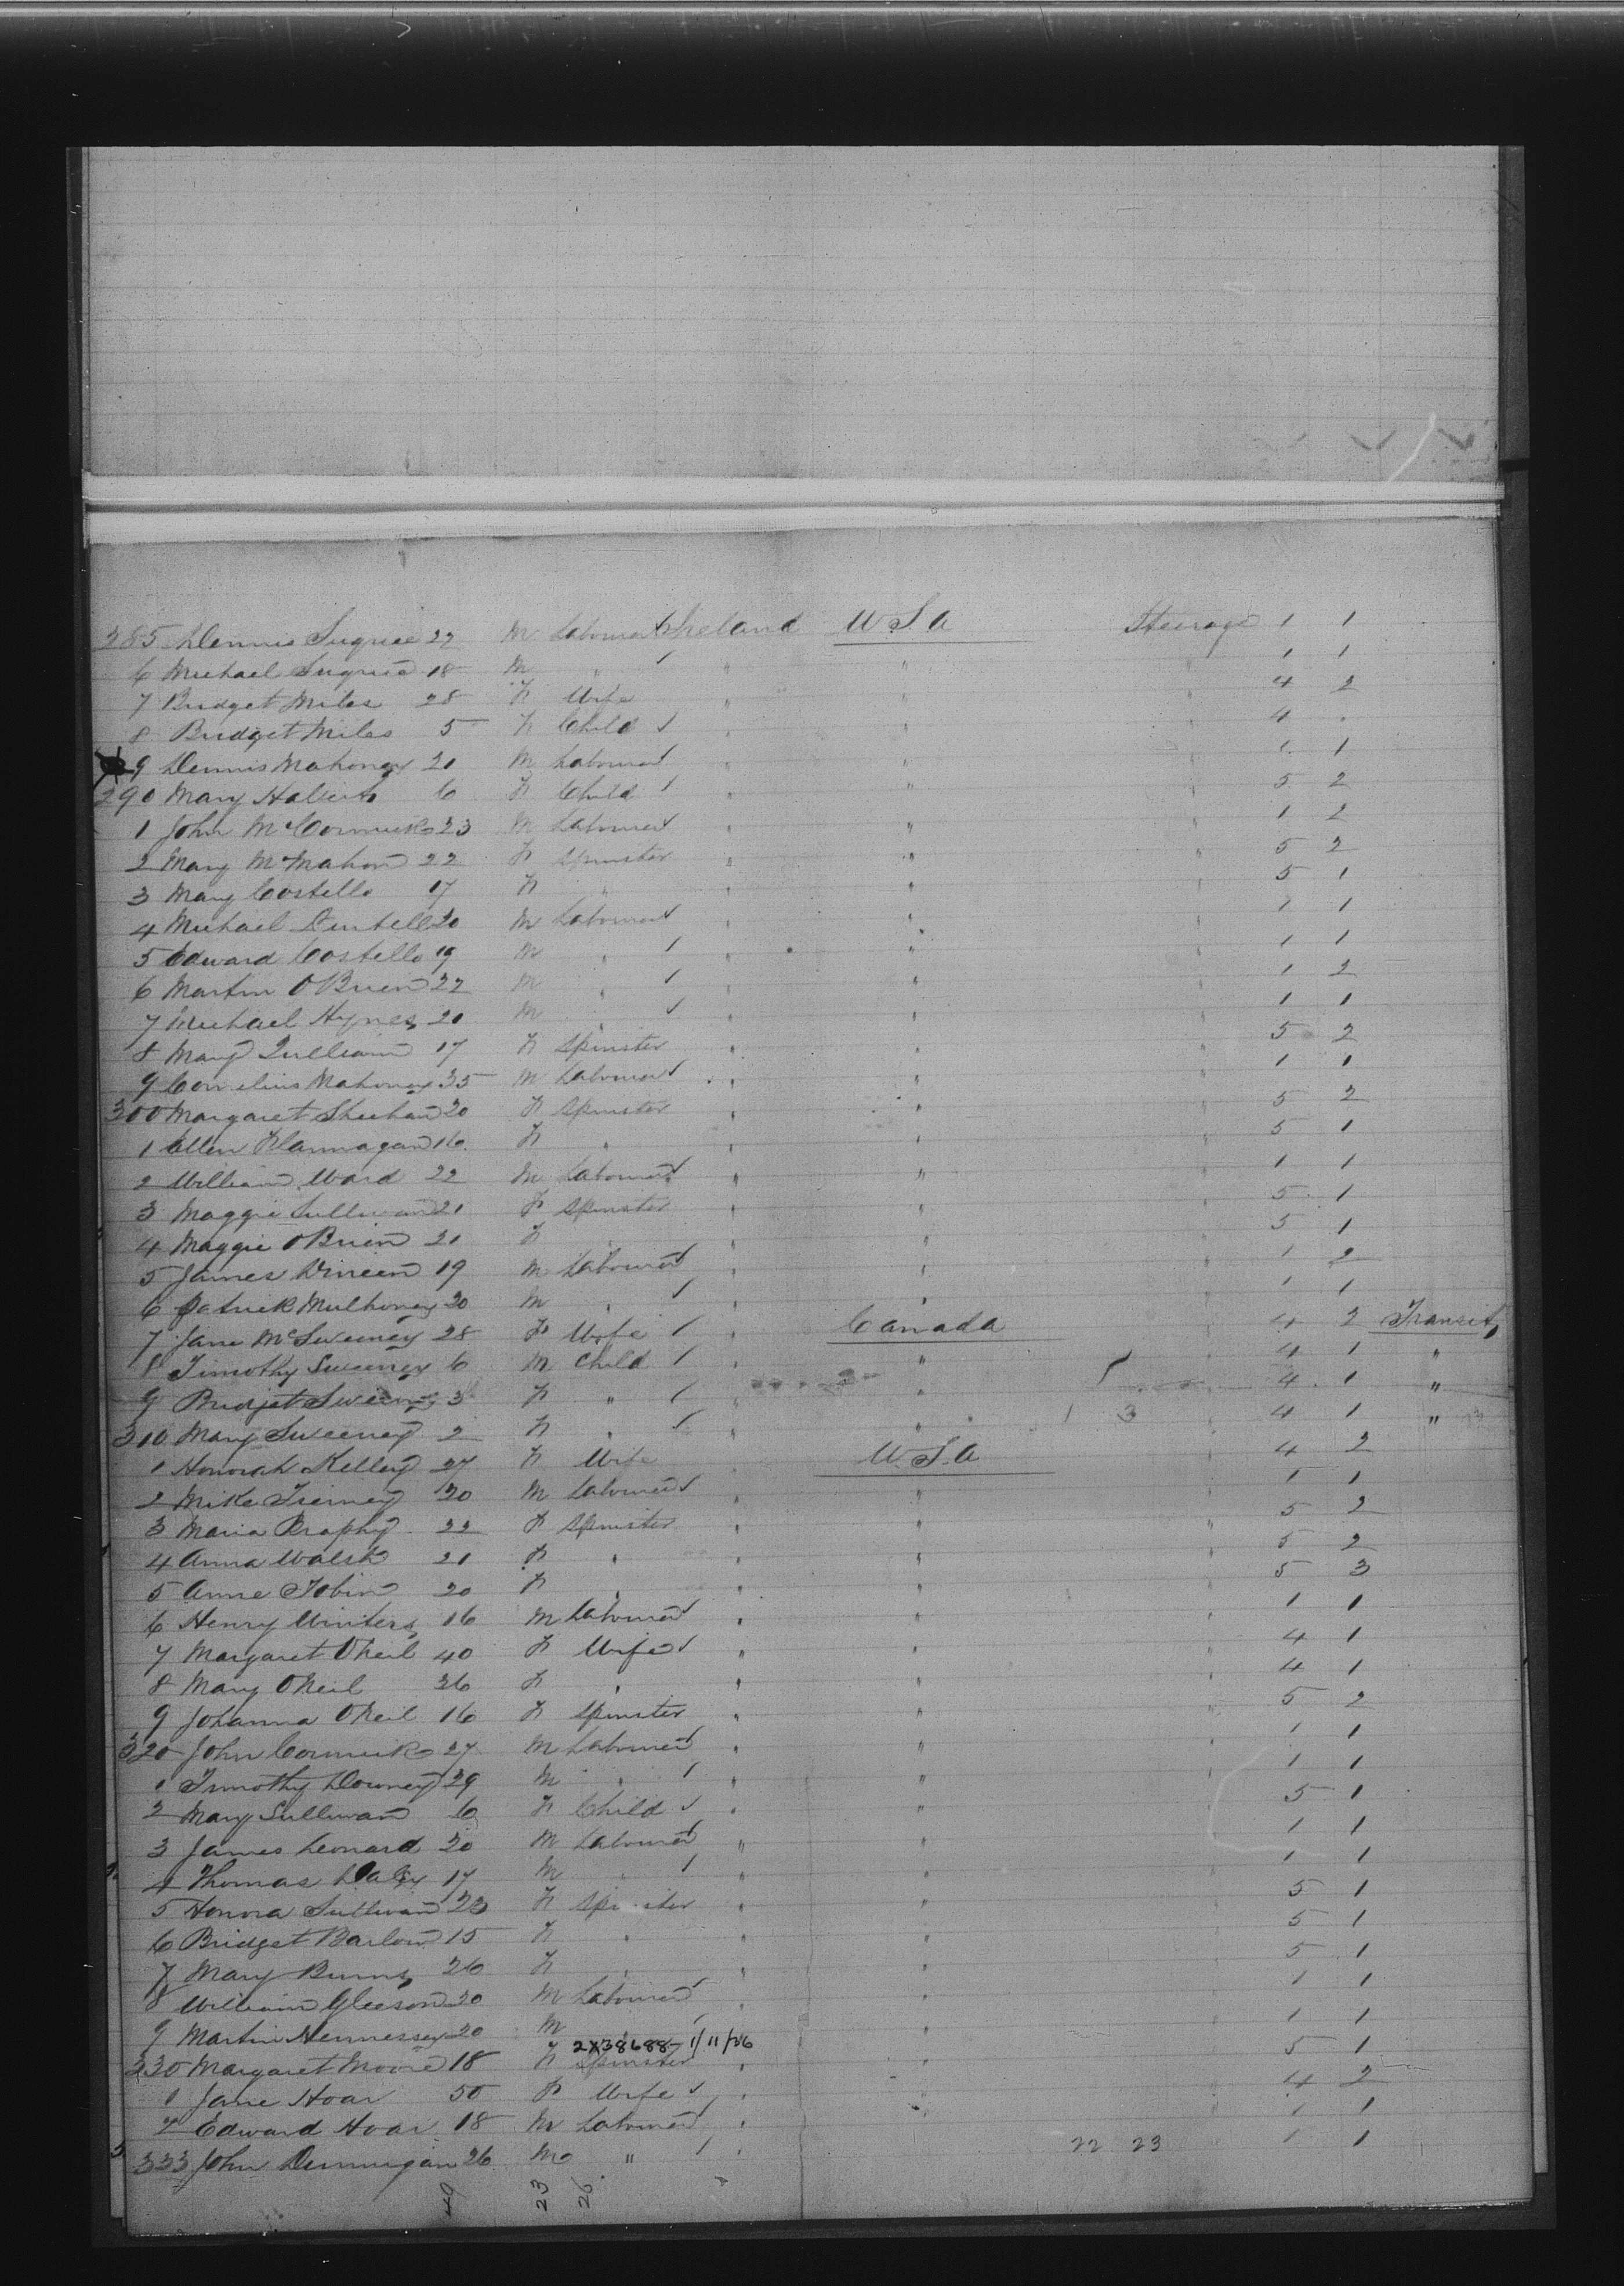 285 Dennis Sugrue 22 M Labourer Ireland U.S.A Steerage 1 1
6 Michael Sugrue 18 M " " " " 1 1
7 Bridget Miles 28 F Wife " " " 4 2
8 Bridget Miles 5 F Child " " " 4
9 Dennis Mahoney 20 M Labourer " " " 1 1
290 Mary 6 F Child " " " 5 2
1 John McCormick 23 M Labourer " " " 1 2
2 Mary McMahon 22 F Spinster " " " 5 2
3 Mary Costello 17 F " " " " 5 1
4 Michael 20 M Labourer " " " 1 1
5 Edward Costello 19 M " " " " 1 1
6 Martin OBrien 22 M " " " " 1 2
7 Michael Hynes 20 M " " " " 1 1
8 Mary 17 F Spinster " " " 5 2
9 Cornelius Mahoney 35 M Labourer " " " 1 1
300 Margaret Sheehan 20 F Spinster " " " 5 2
1 Ellen Flannagan 16 F " " " " 5 1
2 William Ward 22 M Labourer " " " 1 1
3 Maggie Sullivan 21 F Spinster " " " 5 1
4 Maggie OBrien 21 F " " " " 5 1
5 James Dineen 19 M Labourer " " " 1 2
6 Patrick 20 M " " " " 1 1
7 Jane McSweeney 28 F Wife " Canada " 4 2 Transit
8 Timothy Sweeney 6 M Child " " " 4 1 "
9 Bridget Sweeney 3 F " " " " 4 1 "
310 Mary Sweeney 2 F " " " 1 3 " 4 1 "
1 Honorah Kelley 27 F Wife " U.S.A " 4 2
2 Mike Tierney 20 M Labourer " " " 1 1
3 Maria Brophy 22 F Spinster " " " 5 2
4 Anna Walsh 21 F " " " " 5 2
5 Anne Tobin 20 F " " " " 5 3
6 Henry Winters 16 M Labourer " " " 1 1
7 Margaret ONeil 40 F Wife " " " 4 1
8 Mary ONeil 26 F " " " " 4 1
9 Johanna ONeil 16 F Spinster " " " 5 2
320 John Cormick 27 M Labourer " " " 1 1
1 Timothy Downey 29 M " " " " 1 1
2 Mary Sullivan 6 F Child " " " 5 1
3 James Leonard 20 M Labourer " " " 1 1
4 Thomas Daley 17 M " " " " 1 1
5 Honora Sullivan 23 F Spinster " " " 5 1
6 Bridget Barlow 15 F " " " " 5 1
7 Mary Burns 26 F " " " " 5 1
8 William Gleeson 20 M Labourer " " " 1 1
9 Martin Hennessey 20 M " " " " 1 1
2X38688-1/11/36
330 Margaret Moore 18 F Spinster " " " 5 1
1 Jane Hoar 50 F Wife " " " 4 2
2 Edward Hoar 18 M Labourer " " " 1 1
333 John Dunnigan 26 M " " 22 23 1 1
49 23 26